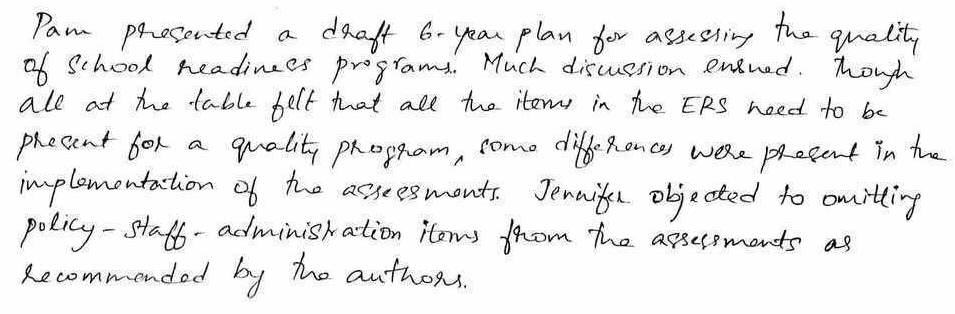 Pam presented a draft 6-year plan for assessing the quality
of School readiness programs. Much discussion ensued. Though
all at the table felt that all the items in the ERS need to be
present for a quality program, some differences were present in the
implementation of the assessments. Jennifer objected to omitting
policy-staff-administration items from the assessments as
recommended by the authors.